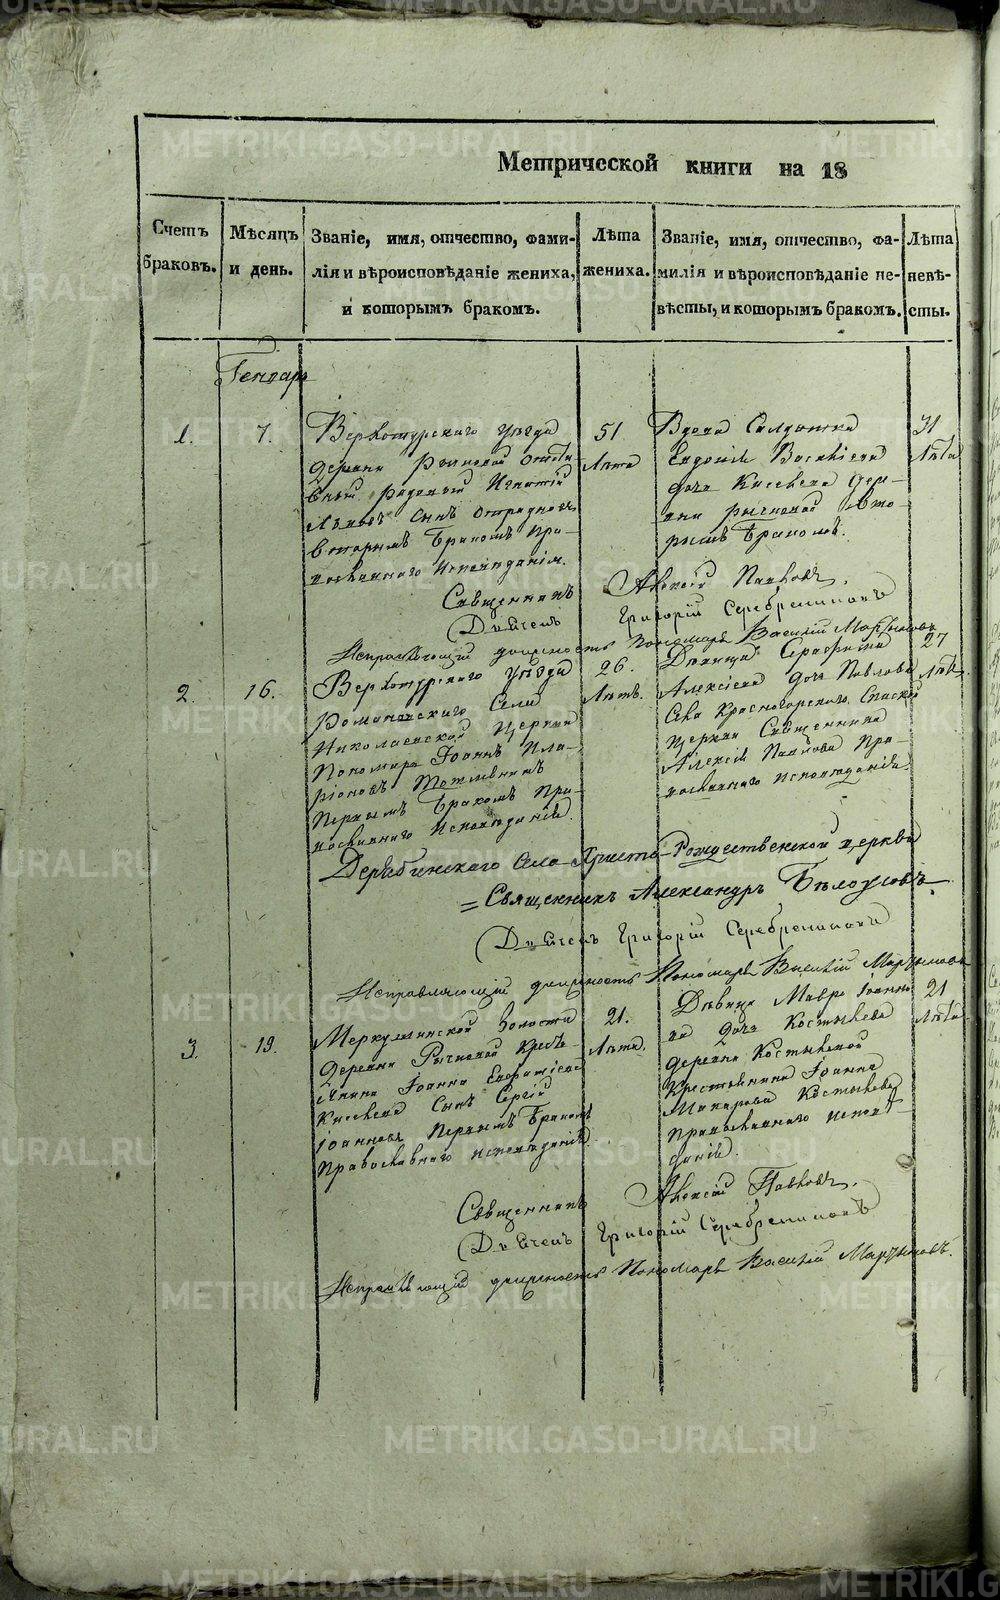 METRIKI.GASO-URAL.RU
Метрической книги на 18
Счетъ браковъ.
Мѣсяцъ и день.
Званіе, имя, отчество, фами-
лія и вѣроисповѣданіе жениха,
и которымъ бракомъ.
Лѣта
жениха.
Званіе, имя, отчество, фа-
милія и вѣроисповѣданіе не-
вѣсты, и которымъ бракомъ.
Лѣта
невѣ-
сты.
Генварь
1.
7.
Верхотурскаго уѣзда
деревни Рычковой отста
вный рядовый Игнатій
сынъ
вторымъ бракомъ пра-
вославнаго исповѣданія.
51
Лѣта
Вдова Салдатка
Евдокія Васильева
дочь Киселева дер-
вни Рычковой вто-
рымъ бракомъ.
31
Лѣта
Священникъ Алексей Павловъ.
Діаконъ Григорій Серебрениковъ
Исправляющій должность Пономаря Василій Мартыновъ
2.
16.
Верхотурскаго уѣзда
Романовскаго Села
Николаевской церкви
Пономарь Іоаннъ Ила-
ріоновъ
первымъ бракомъ пра-
вославнаго исповѣданія.
26.
Лѣтъ.
Дѣвица Серафима
Алексіева дочь Павлова
Села Красногорскаго Спаской
церкви Священника
Алексія Павлова пра-
вославнаго исповѣданія.
27
Лѣтъ.
Дерябинскаго Села Христо-Рождественской церкви
Священникъ Александръ Бѣлоусовъ.
Діаконъ Григорій Серебрениковъ
Исправляющій должность Пономаря Василій Мартыновъ
3.
19.
Меркушинской волости
деревни Рычковой крестъ-
янина Іоанна
Киселева сынъ Сергій
Іоанновъ первымъ бракомъ
Православнаго исповѣданія.
21.
Лѣта.
Дѣвица Мавра Іоанно
ва дочь Костылева
деревни Костылевой
крестьянина Іоанна
Макарова Костылева
православнаго исповѣ-
данія.
21
Лѣта.
Священникъ Алексій Павловъ.
Діаконъ Григорій Серебрениковъ
Исправляющій должность Пономаря Василій Мартыновъ.